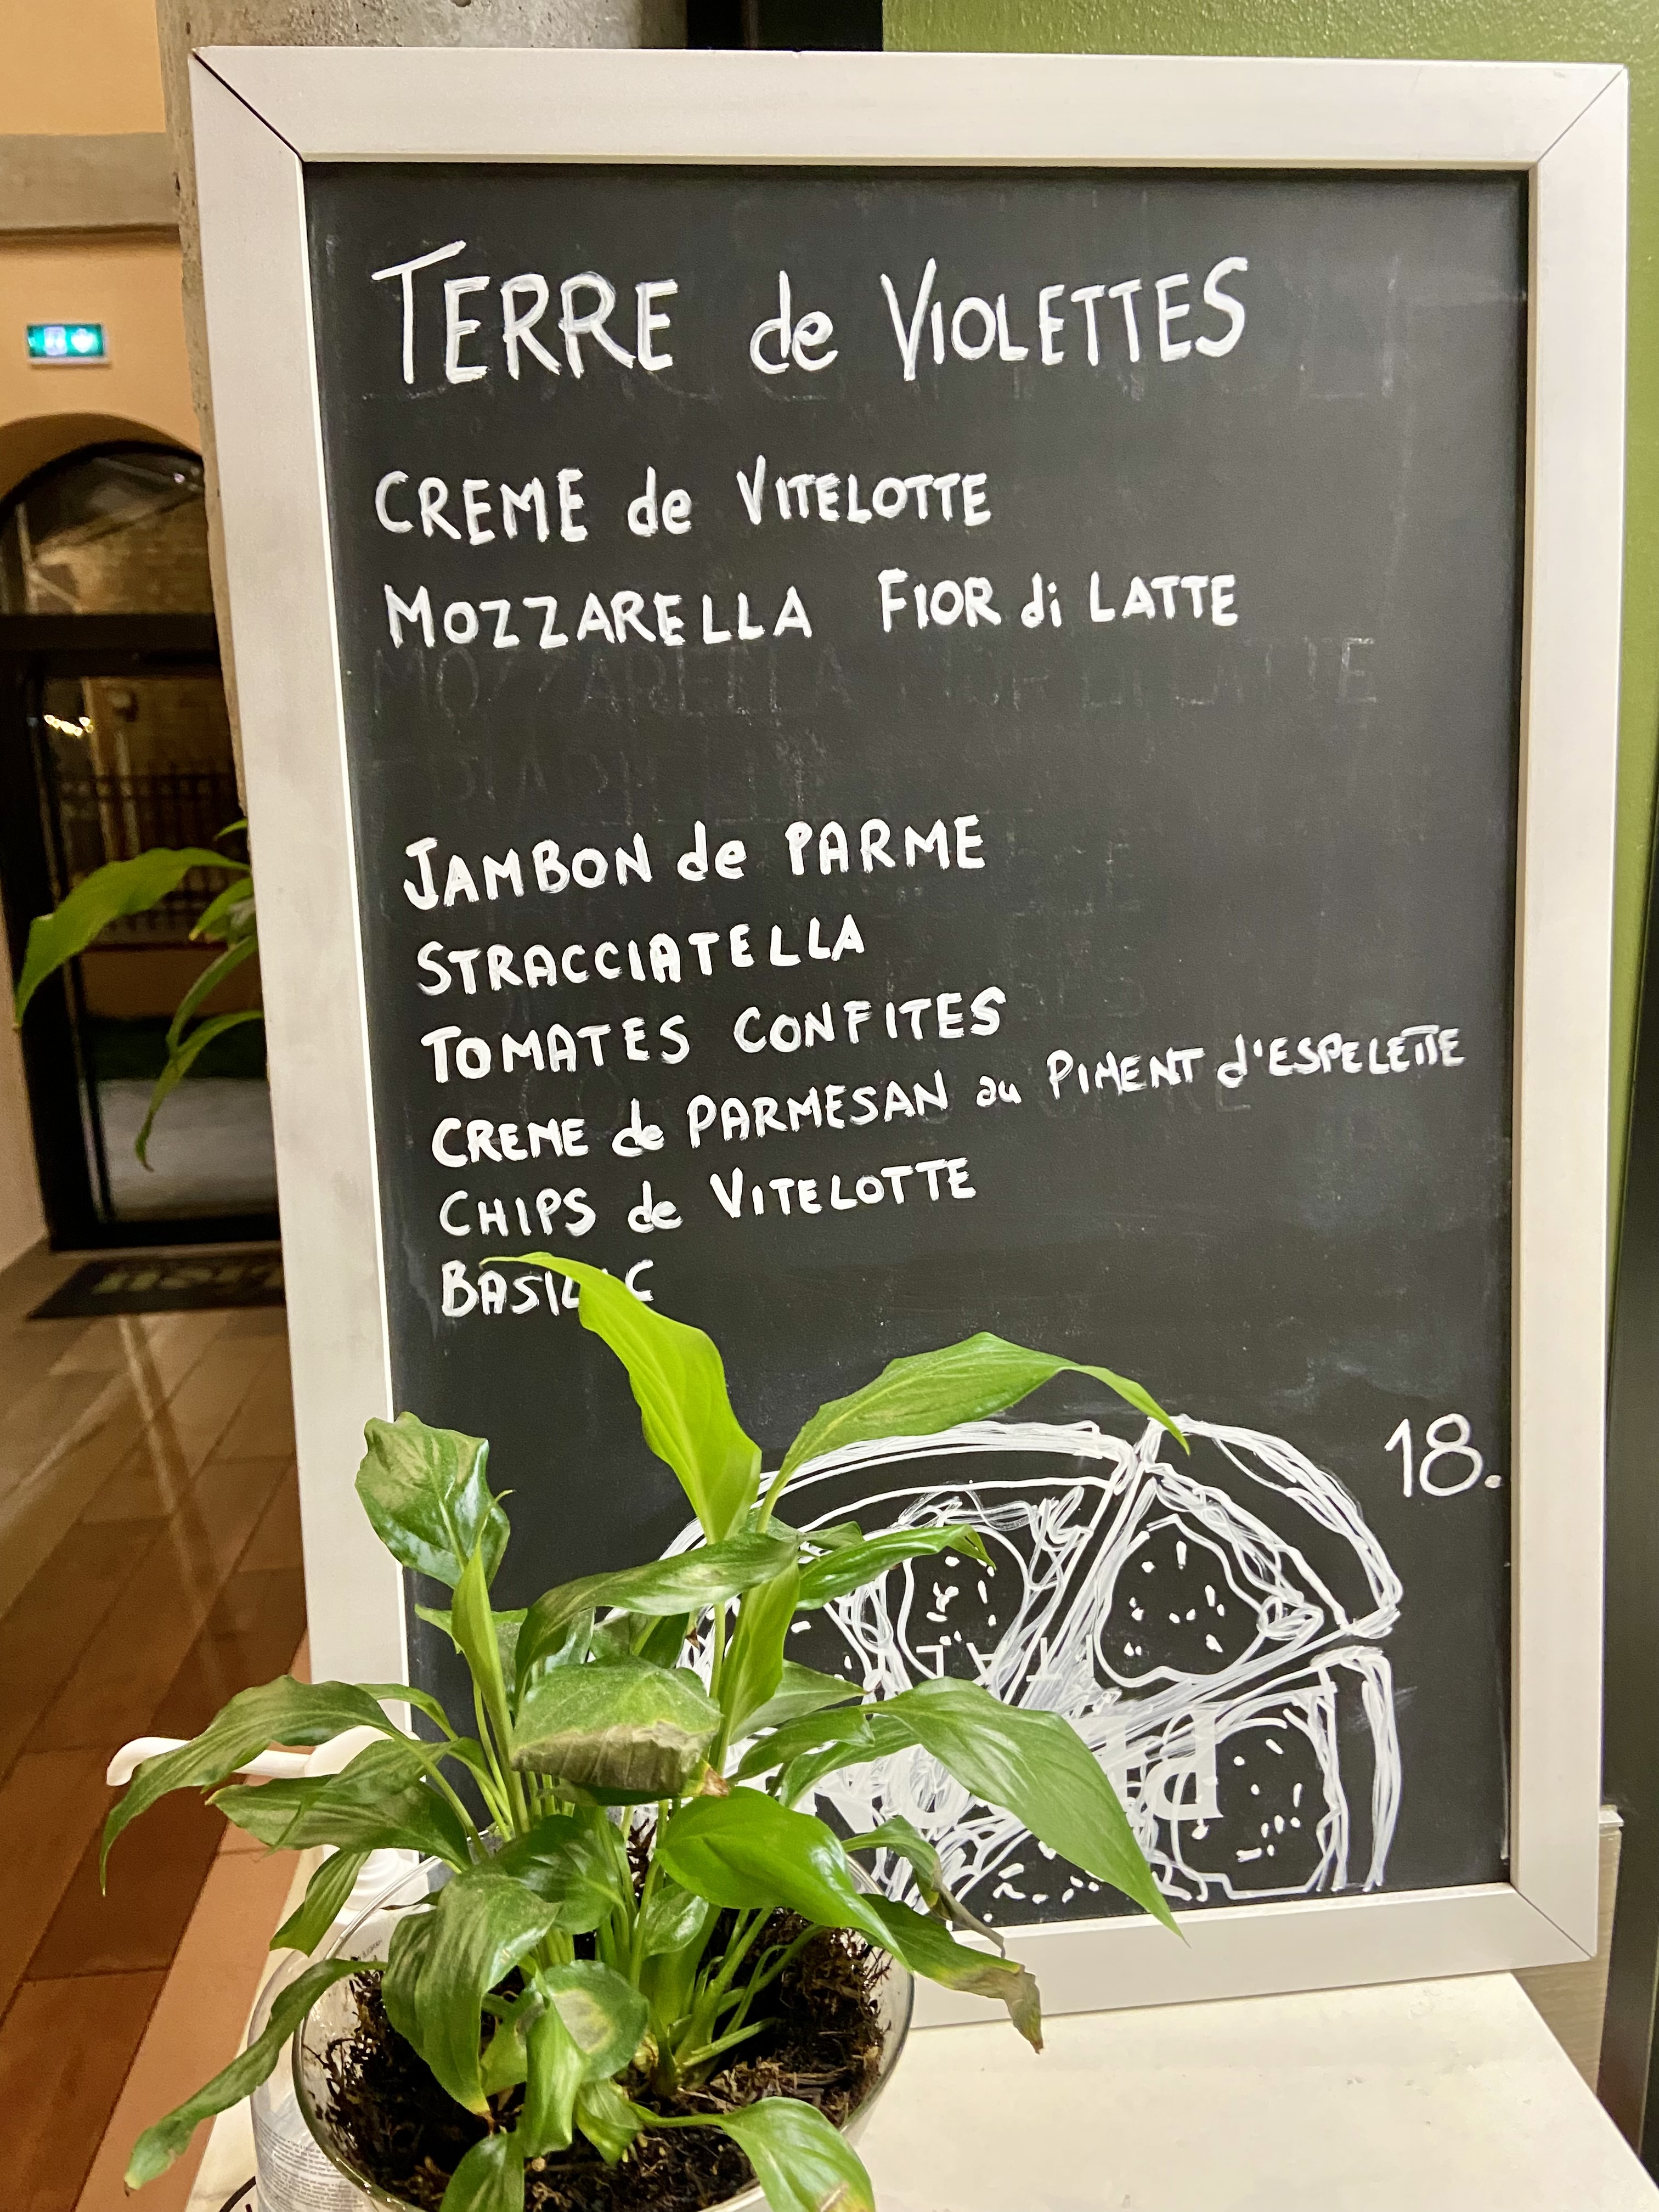 TERRE de VIOLETTES
CREME de VITELOTTE
MOZZARELLA FIOR di LATTE
JAMBON de PARME
STRACCIATELLA
TOMATES CONFITES
CREME de PARMESAN au PIMENT d'ESPELETTE
CHIPS de VITELOTTE
BASILIC
18.